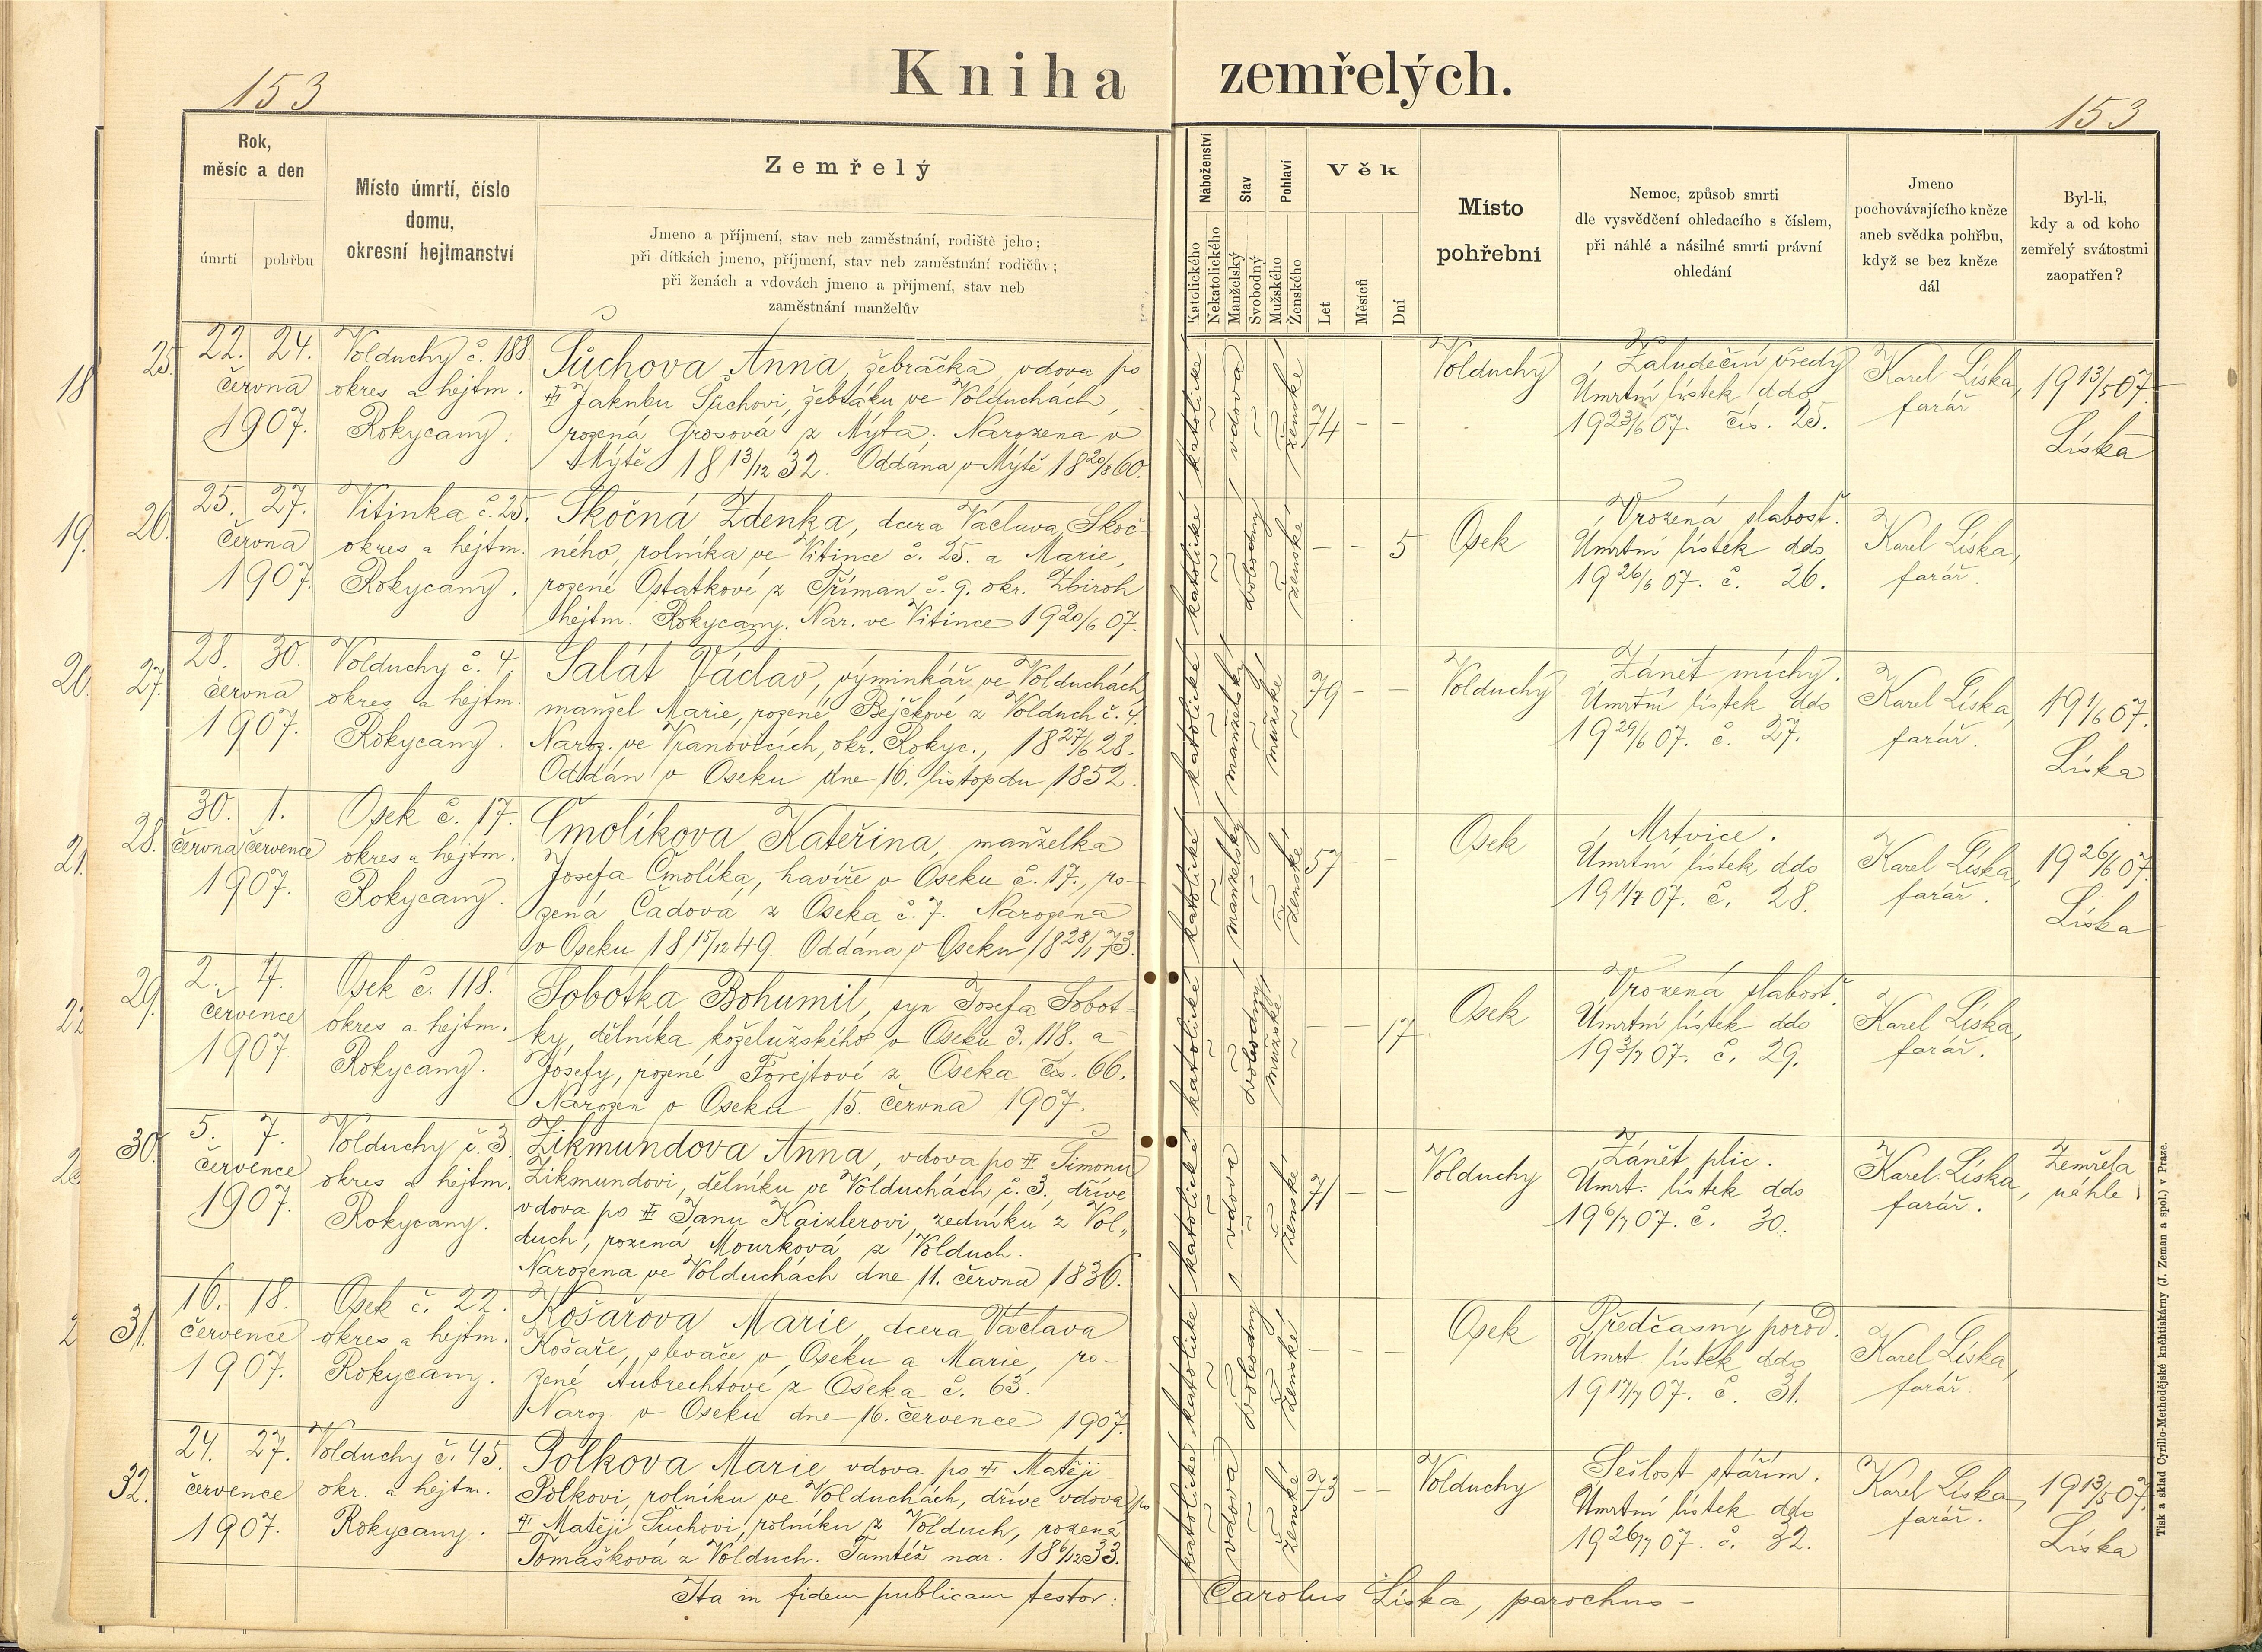 153
Kniha zemřelých.
153
Rok,
měsíc a den
úmrtí
pohřbu
Místo úmrtí, číslo
domu,
okresní hejtmanství
Zemřelý
Jmeno a příjmení, stav neb zaměstnání, rodiště jeho;
při dítkách jmeno, příjmení, stav neb zaměstnání rodičův;
při ženách a vdovách jmeno a příjmení, stav neb
zaměstnání manželův
Náboženství
Katolického
Nekatolického
Stav
Manželský
Svobodný
Pohlaví
Mužského
Ženského
Věk
Let
Měsíců
Dní
Místo
pohřební
Nemoc, způsob smrti
dle vysvědčení ohledacího s číslem,
při náhlé a násilné smrti právní
ohledání
Jmeno
pochovávajícího kněze
aneb svědka pohřbu,
když se bez kněze
dál
Byl-li,
kdy a od koho
zemřelý svátostmi
zaopatřen?
18
25.
22. 24.
června
1907.
Volduchy č. 188.
okres a hejtm.
Rokycany.
Šůchova Anna, žebračka, vdova po
# Jakubu Šůchovi, žebráku ve Volduchách,
rozená Grosová z Mýta. Narozena v
Mýtě 18 13/12 32. Oddána v Mýtě 18 20/8 60.
katolické
vdova
ženské
74 – –
Volduchy
Žaludeční vředy.
Úmrtní lístek ddo
19 23/6 07. čís. 25.
Karel Líska,
farář
19 13/5 07.
Líska
19.
26.
25. 27.
června
1907.
Vitinka č. 25.
okres a hejtm.
Rokycany.
Skočná Zdenka, dcera Václava Skoč-
ného, rolníka ve Vitince č. 25. a Marie,
rozené Ostatkové z Tříman č. 9. okr. Zbiroh
hejtm. Rokycany. Nar. ve Vitince 19 20/6 07.
katolické
svobodný
ženské
– – 5
Osek
Vrozená slabost.
Úmrtní lístek ddo
19 26/6 07. č. 26.
Karel Líska,
farář.
20.
27.
28. 30.
června
1907.
Volduchy č. 4.
okres a hejtm.
Rokycany.
Salát Václav, výminkář ve Volduchách
manžel Marie, rozené Bejčkové z Volduch č. 4.
Naroz. ve Vranovicích, okr. Rokyc., 18 27/6 28.
Oddán v Oseku dne 16. listopdu 1852.
katolické
manželský
mužské
79 – –
Volduchy
Zánět míchy.
Úmrtní lístek ddo
19 29/6 07. č. 27.
Karel Líska,
farář.
19 1/6 07.
Líska
21.
28.
30. 1.
června července
1907.
Osek č. 17.
okres a hejtm.
Rokycany.
Čmolíkova Kateřina, manželka
Josefa Čmolíka, havíře v Oseku č. 17., ro-
zená Čadová z Oseka č. 7. Narozena
v Oseku 18 15/12 49. Oddána v Oseku 18 28/1 73.
katolické
manželský
ženské
57 – –
Osek
Mrtvice.
Úmrtní lístek ddo
19 1/7 07. č. 28.
Karel Líska,
farář.
19 26/6 07.
Líska
22
29.
2. 4.
července
1907.
Osek č. 118.
okres a hejtm.
Rokycany.
Sobotka Bohumil, syn Josefa Sobot-
ky, dělníka koželužského v Oseku č. 118. a
Josefy, rozené Forejtové z Oseka čís. 66.
Narozen v Oseku 15. června 1907.
katolické
svobodný
mužské
– – 17
Osek
Vrozená slabost.
Úmrtní lístek ddo
19 3/7 07. č. 29.
Karel Líska,
farář.
30.
5. 7.
července
1907.
Volduchy č. 3.
okres a hejtm.
Rokycany.
Zikmundova Anna, vdova po # Šimonu
Zikmundovi, dělníku ve Volduchách č. 3., dříve
vdova po # Janu Kaizlerovi, zedníku z Vol-
duch, rozená Mourková z Volduch.
Narozena ve Volduchách dne 11. června 1836.
katolické
vdova
ženské
71 – –
Volduchy
Zánět plic.
Úmrt. lístek ddo
19 6/7 07. č. 30.
Karel Líska,
farář.
Zemřela
náhle.
2
31.
16. 18.
července
1907.
Osek č. 22.
okres a hejtm.
Rokycany.
Košařova Marie, dcera Václava
Košaře, slevače v Oseku a Marie, ro-
zené Aubrechtové z Oseka č. 63.
Naroz. v Oseku dne 16. července 1907.
katolické
svobodný
ženské
– – –
Osek
Předčasný porod.
Úmrt. lístek ddo
19 17/7 07. č. 31.
Karel Líska,
farář
32.
24. 27.
července
1907.
Volduchy č. 45.
okr. a hejtm.
Rokycany.
Polkova Marie, vdova po # Matěji
Polkovi, rolníku ve Volduchách, dříve vdova po
# Matěji Šuchovi, rolníku z Volduch, rozená
Tomášková z Volduch. Tamtéž nar. 18 6/12 33.
katolické
vdova
ženské
73 – –
Volduchy
Sešlost stářím.
Úmrtní lístek ddo
19 26/7 07. č. 32.
Karel Líska,
farář.
19 13/5 07.
Líska
Ita in fidem publicam testor:
Carolus Líska, parochus –
Tisk a sklad Cyrillo-Methodějské kněhtiskárny (J. Zeman a spol.) v Praze.